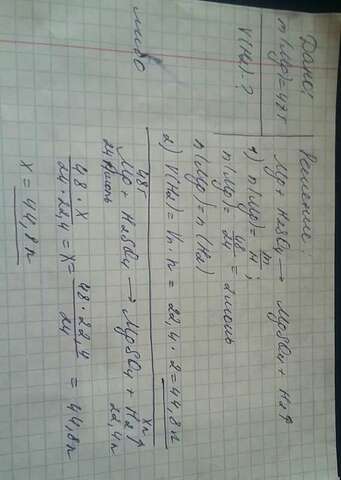 Дано:
n(Mg) = 48 г
V(H2) - ?
либо
Решение
Mg + H2SO4 → MgSO4 + H2↑
1) n(Mg) = m/M ;
n(Mg) = 48/24 = 2 моль
n(Mg) = n(H2)
2) V(H2) = Vn · n = 22,4 · 2 = 44,8 л
48г xл
Mg + H2SO4 → MgSO4 + H2↑
24г/моль 22,4л
48 · x / 24 · 22,4 = x = 48 · 22,4 / 24 = 44,8л
x = 44,8л